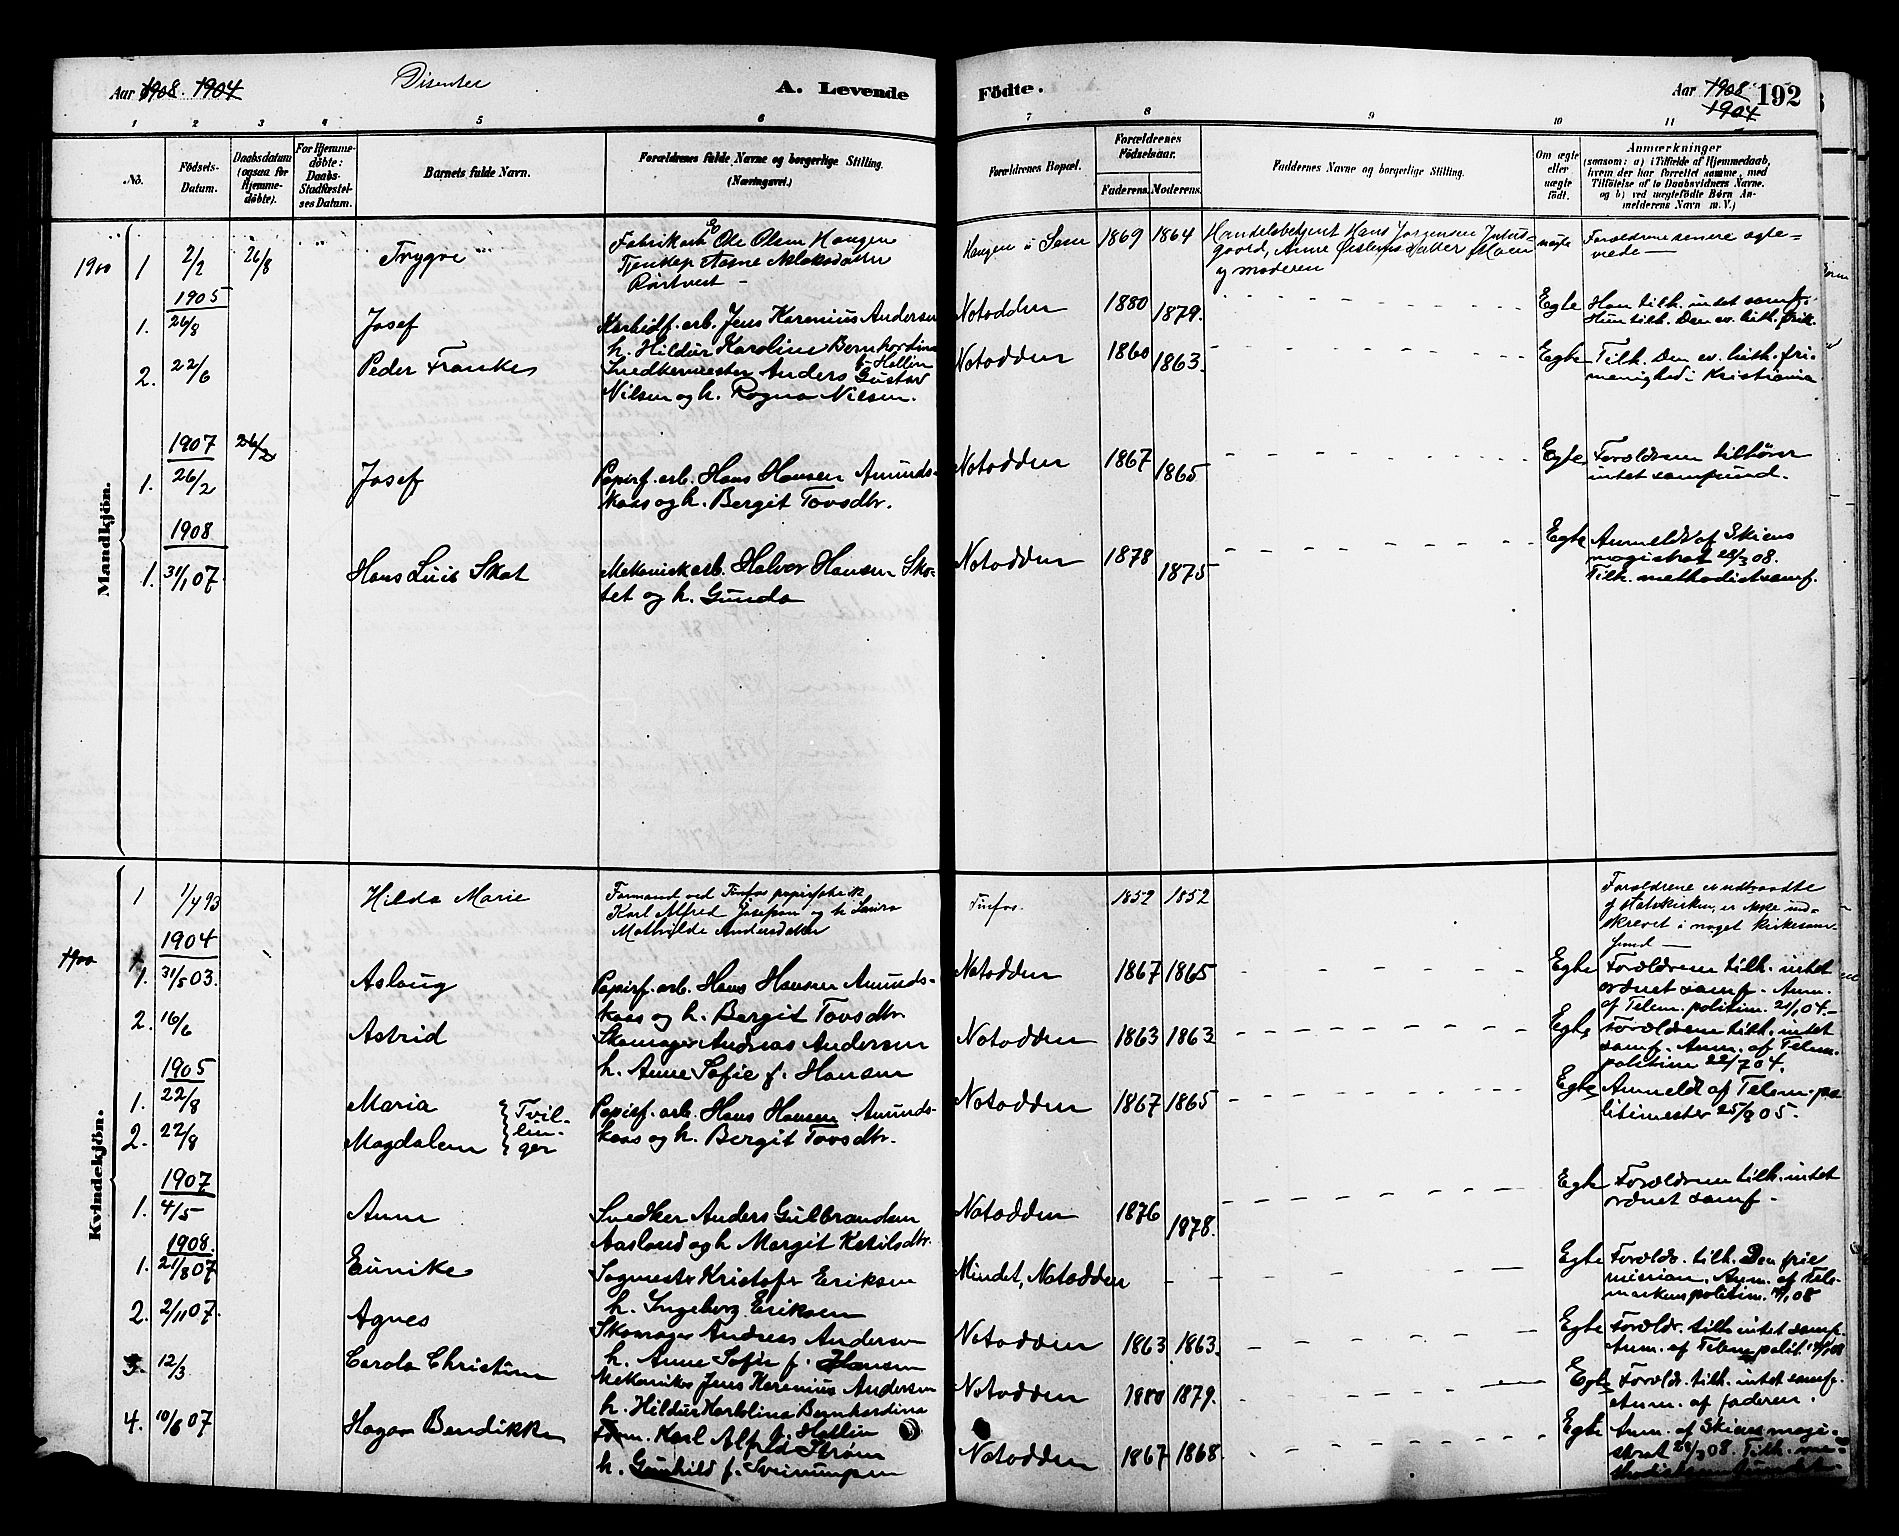 Aar 1908. 1904
Disenter
A. Levende
Födte.
Aar 1908
1904
192
1 2 3 4 5 6 7 8 9 10 11
No.
Födsels-
Datum.
Daabsdatum
(ogsaa for
Hjemme-
döbte).
For Hjemme-
döbte:
Daabs-
Stadfæstel-
ses Datum.
Barnets fulde Navn.
Forældrenes fulde Navne og borgerlige Stilling.
(Næringsvei.)
Forældrenes Bopæl.
Forældrenes
Födselsaar.
Faderens. Moderens.
Faddernes Navne og borgerlige Stilling.
Om ægte
eller
uægte
födt.
Anmærkninger
(saasom: a) i Tilfælde af Hjemmedaab,
hvem der har forrettet samme, med
Tilföielse af to Daabsvidners Navne.
og b) ved uægtefödte Börn An-
melderens Navn m. V.)
Mandkjön.
1900 1 2/2 26/8 Trygve
Fabrikarb Ole Olsen Haugen
Tjenstep Aasne Aslaksdatter
Rørtveit
Haugen i Sem 1869 1864
Handelsbetjent Hans Jørgensen
gaard, Anne
og moderen
uægte
Forældrene senere ægte-
viede
1905
1. 26/8 Josef
Karbidf. arb. Jens Karenius Andersen
h. Hildur Karoline Bernhardina
f. Hollin
Notodden 1880 1879. Egte
Han tilh. intet samf.
Hun tilh. Den ev. luth. frik.
2. 22/6 Peder Franke
Snedkermester Anders Gustav
Nilsen og h. Ragna Nilsen.
Notodden 1860 1863. Egte
Tilh. Den ev. luth. fri-
menighed i Kristiania
1907 26/2
1. 26/2 Josef
Papirf. arb. Hans Hansen Amunds-
kaas og h. Bergit Tovsdtr.
Notodden 1867 1865 Egte
Forældrene tilhører
intet samfund.
1908
1. 31/1 07. Hans Luis Skat
Mekanisk arb. Halvor Hansen Ska-
tet og h. Gunda
Notodden 1878 1875 Egte
Anmeldt af Skiens
magistrat 28/3 08.
Tilh. methodistsamf.
Kvindekjön.
1 1/4 93 Hilda Marie
Formand ved Tinfos papirfabrik
Karl Alfred Josefsen og h Laura
Mathilde Andersdatter
Tinfos. 1852 1852
Forældrene er udtraadte
af statskirken, er ikke ind-
skrevet i noget kirkesam-
fund
1904
1900 1. 31/5 03. Aslaug
Papirf. arb. Hans Hansen Amunds-
kaas og h. Bergit Tovsdtr.
Notodden 1867 1865 Egte
Forældrene tilh. intet
ordnet samf. Anm.
af Telem. politim. 21/1 04.
2. 16/6 Astrid
Skomager Andreas Andersen
h. Anne Sofie f. Hansen
Notodden 1863 1863 Egte
Forældrene tilh. intet
samf. Anm. af Telem.
politim 22/7 04.
1905
1. 22/8 Maria
2. 22/8 Magdalene
Tvil-
lin-
ger
Papirf. arb. Hans Hansen Amunds-
kaas og h. Bergit Tovsdtr.
Notodden 1867 1865 Egte
Anmeldt af Telem. po-
litimester 25/9 05.
1907
1. 4/5 Anne
Snedker Anders Gulbrandsen
Aasland og h Margit Ketilsdtr.
Notodden 1876 1878. Egte
Forældrene tilh. intet
ordnet samf.
1908.
1. 21/8 07 Eunike
Sogmester Kristofer Eriksen
h. Ingeborg Eriksen
Mindet, Notodden Egte
Forældr. tilh. Den frie
mission. Anm. af Tele-
markens politim.
2. 2/11 07. Agnes
Skomager Andreas Andersen
h. Anne Sofie f. Hansen
Notodden 1863 1863. Egte
Forældr. tilh. intet samf.
Anm. af Telem. polit.
3. 12/3 Carola Christine
Mekaniker Jens Karenius Andersen
h. Hildur Karolina Bernhardina
f. Hollin
Notodden 1880 1879. Egte
Forældr. tilh. intet samf.
Anm. af faderen.
4. 10/6 07 Hagar Bendikke
Karl Alfred Strøm
h. Gunhild f. Sveinungsen
Notodden 1867 1868. Egte
Anm. af Skiens magi-
strat 28/3 08. Tilh. me-